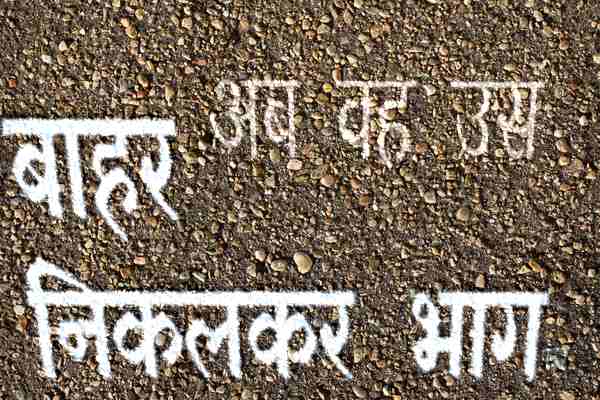 अब वह उस
बाहर
निकलकर भाग